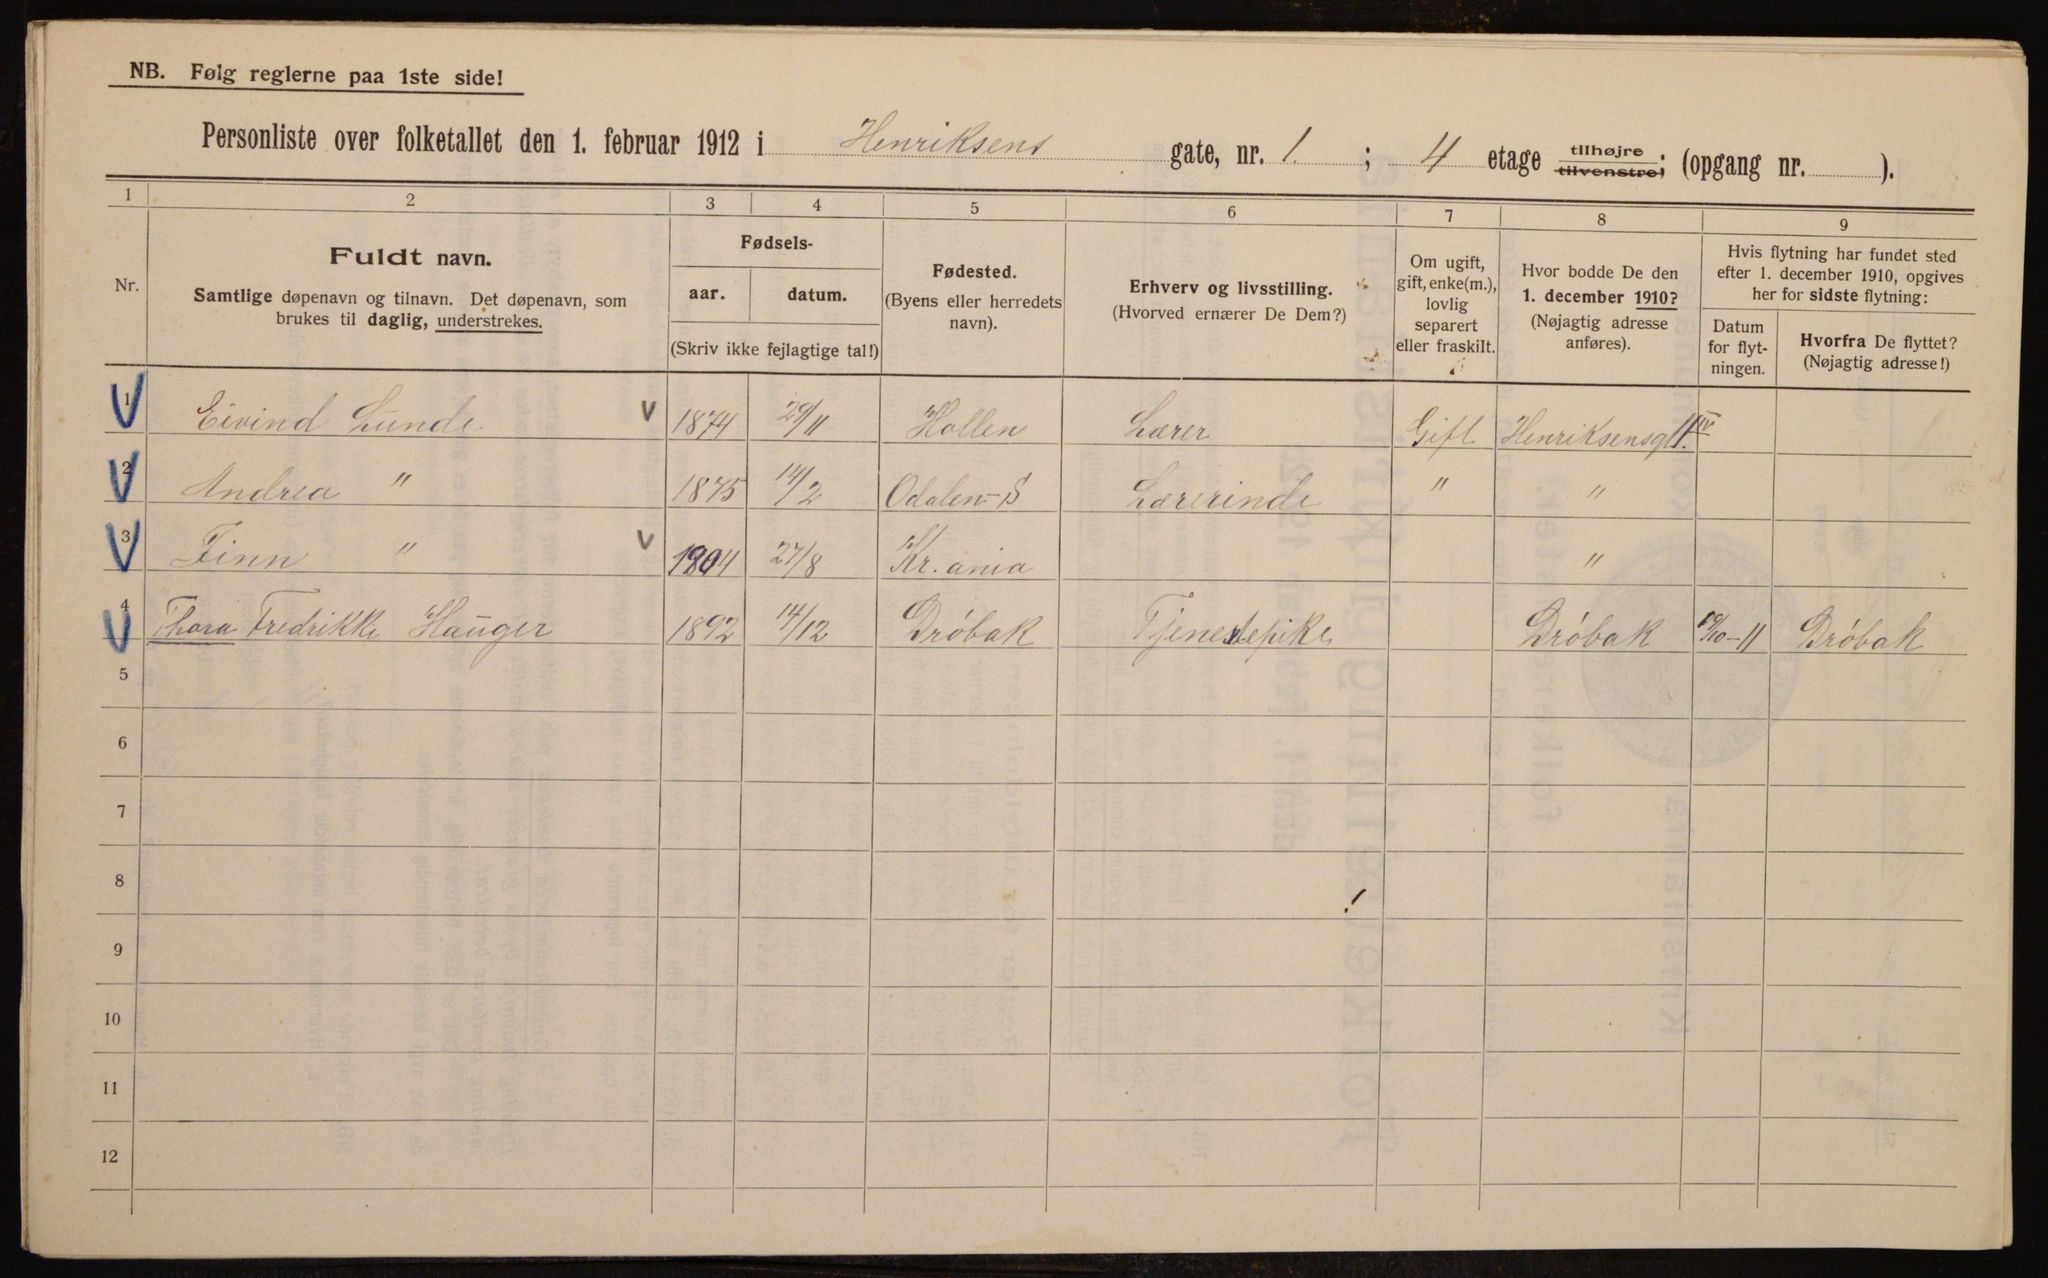 NB. Følg reglerne paa 1ste side!
Personliste over folketallet den 1. februar 1912 i Henriksens gate, nr. 1. ; 4 etage tilhøjre tilvenstre; (opgang nr. ).
1 2 3 4 5 6 7 8 9
Nr.
Fuldt navn.
Samtlige døpenavn og tilnavn. Det døpenavn, som
brukes til daglig, understrekes.
Fødsels-
aar. datum.
(Skriv ikke fejlagtige tal!)
Fødested.
(Byens eller herredets
navn).
Erhverv og livsstilling.
(Hvorved ernærer De Dem?)
Om ugift,
gift, enke(m.),
lovlig
separert
eller fraskilt.
Hvor bodde De den
1. december 1910?
(Nøjagtig adresse
anføres).
Hvis flytning har fundet sted
efter 1. december 1910, opgives
her for sidste flytning:
Datum
for flyt-
ningen.
Hvorfra De flyttet?
(Nøjagtig adresse!)
1 Eivind Lunde V 1874 29/11 Hollen Lærer Gift Henriksensgt 1. IV
2 Andrea " 1875 14/2 Odalen-S Lærerinde " "
3 Finn " V 1904 27/8 Kr.ania "
4 Thora Fredrikke Hauger 1892 14/12 Drøbak Tjenestepike Drøbak /10-11 Drøbak
5
6
7
8
9
10
11
12